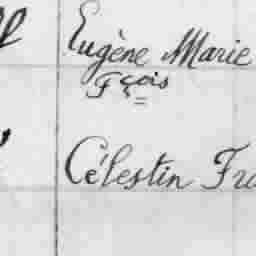 Eugène Marie
Fçois
Célestin Fra